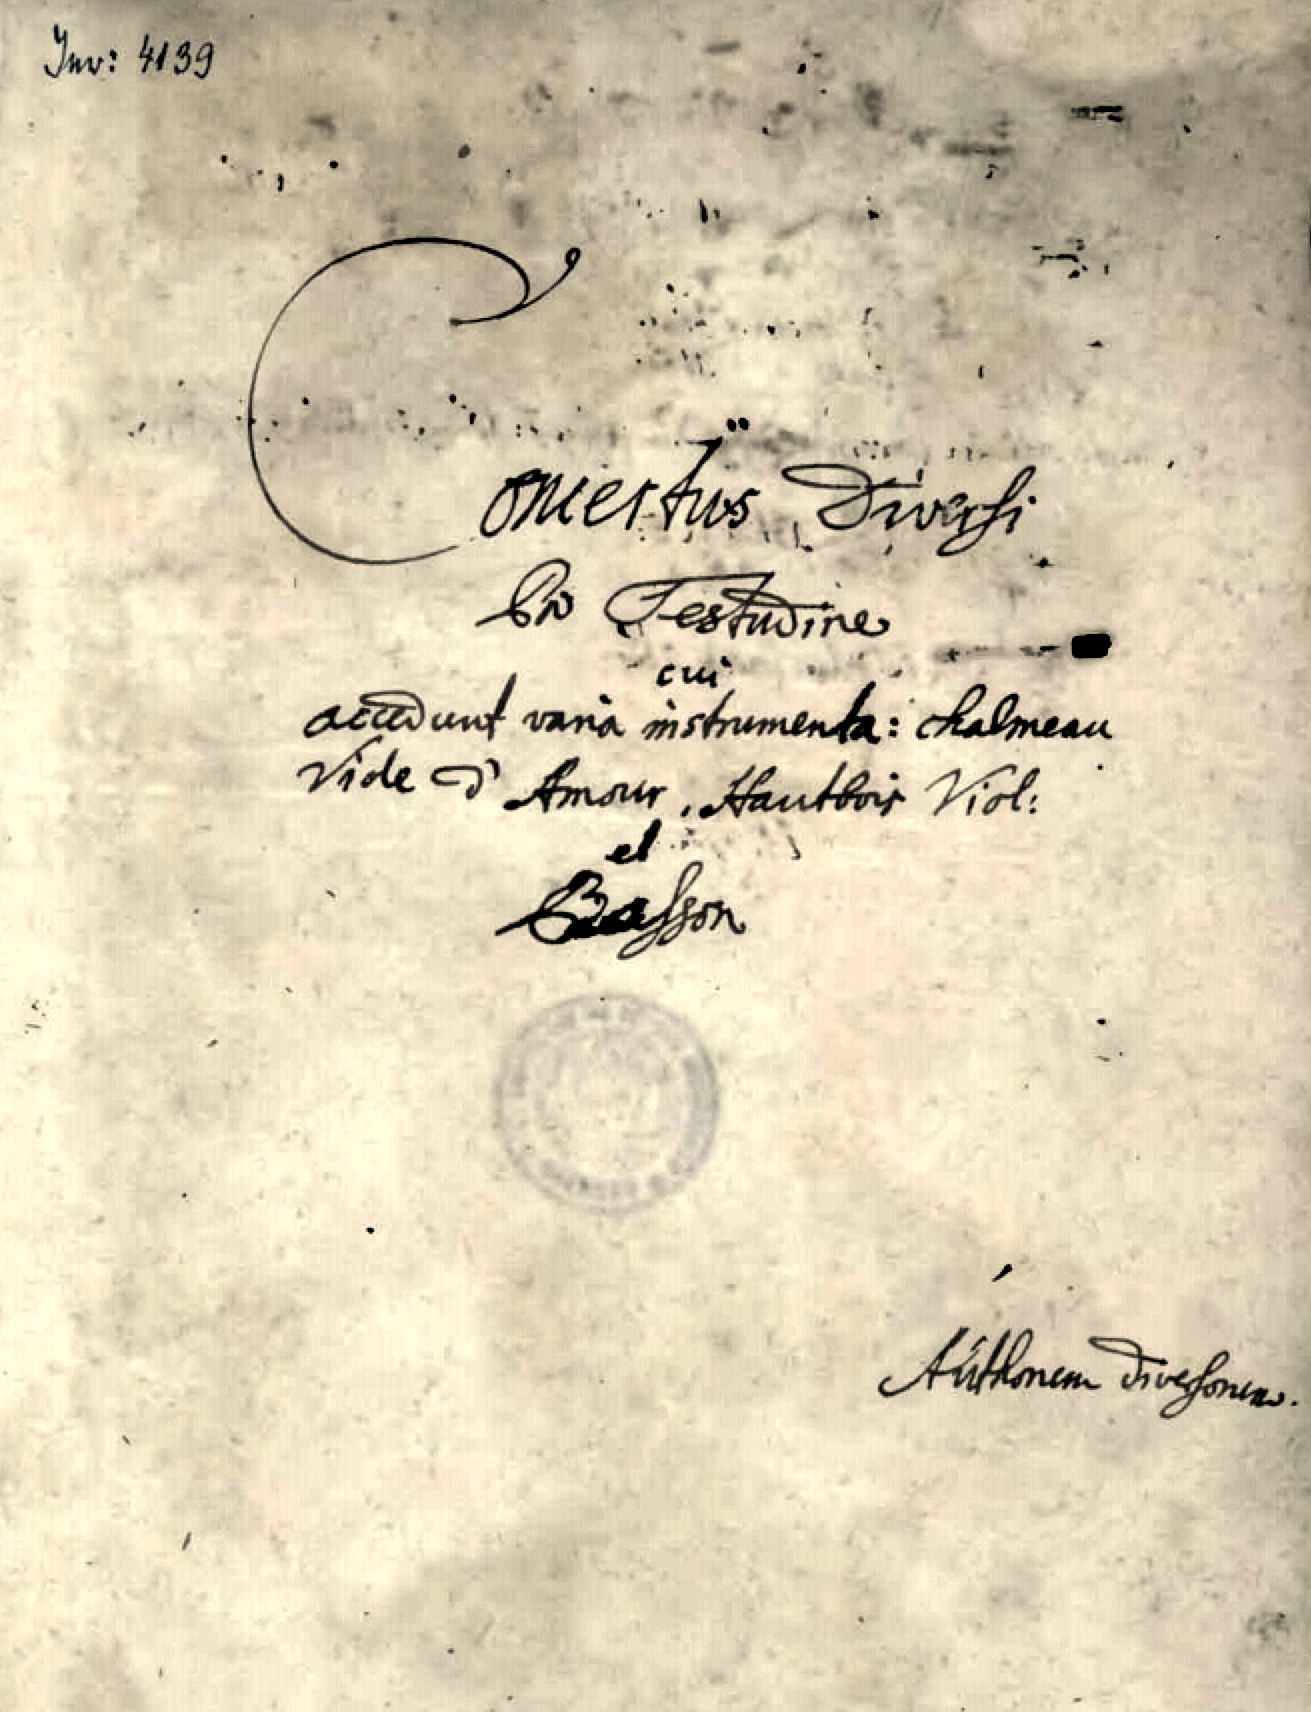 Inv: 4139
Concertüs Diversi
Pro Testudine
cui
accedunt varia instrumenta: chalmeau
Viole d'Amour, Hautbois Viol:
et
Basson
Aúthorum diversorum.